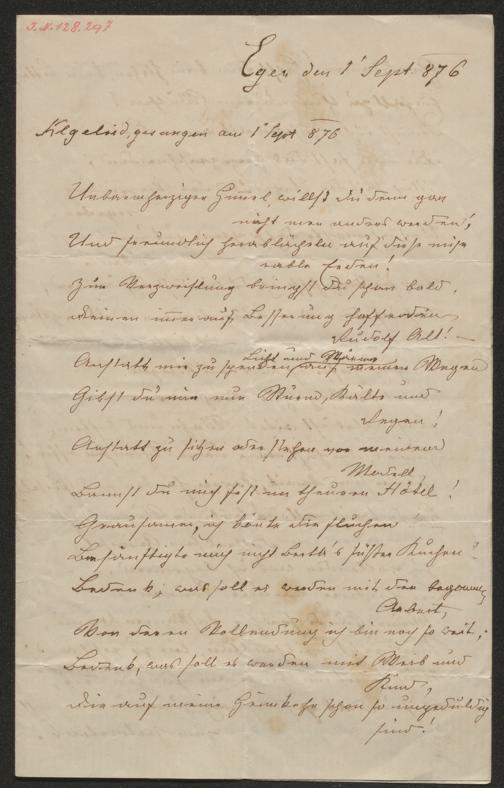 I.N. 128.297
Eger den 1' Sept 876
Klgelied, gesungen am 1' Sept 876
Unbarmherziger Himmel, willst du denn gar
nicht mer anders werden,
Und freundlich herablächeln auf diese mise
rable Erden!
Zur Verzweiflung bringst du schon bald,
deinen immer auf Besserung hoffenden
Rudolf Alt! —
Licht und Wärme
Anstatt mir zu spenden auf meinen Wegen
Gibst du mir nur Sturm, Kälte und
Regen!
Anstatt zu sitzen oder stehen vor meinem
Modell,
Bannst du mich fest im theuren Hôtel!
Grausamer, ich könte dir fluchen
Besänftigte mich nicht Berth's süßer Kuchen!
Bedenk, was soll es werden mit der begonn
Arbeit,
Von deren Vollendung ich bin noch so weit,
Bedenk, was soll es werden mit Weib und
Kind,
die auf meine Heimkehr schon so ungeduldig
sind!